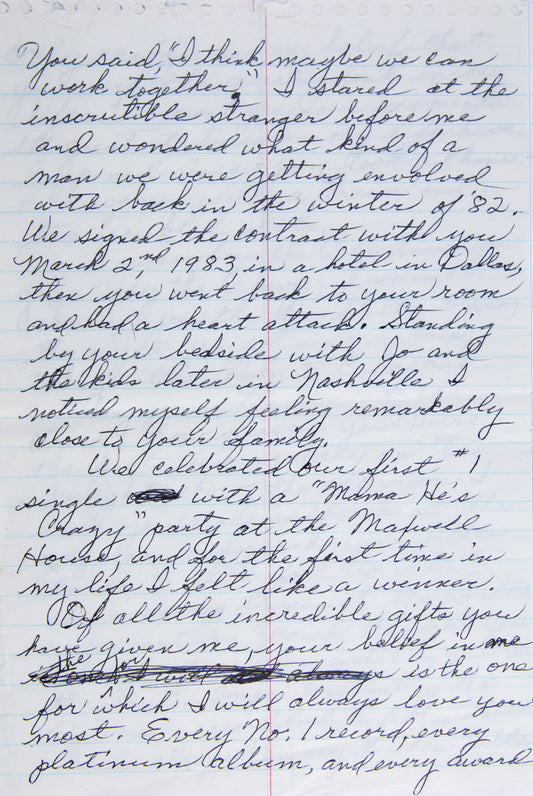 You said, "I think maybe we can
work together." I stared at the
inscrutible stranger before me
and wondered what kind of a
man we were getting envolved
with back in the winter of '82.
We signed the contract with you
March 2,nd 1983, in a hotel in Dallas,
then you went back to your room
and had a heart attack. Standing
by your bedside with Jo and
the kids later in Nashville I
noticed myself feeling remarkably
close to your family.
We celebrated our first #1
single with a "Mama He's
Crazy" party at the Maxwell
House, and for the first time in
my life I felt like a wenner.
Of all the incredible gifts you
have given me, your belief in me
is the one
for which I will always love you
most. Every No. 1 record, every
platinum album, and every award